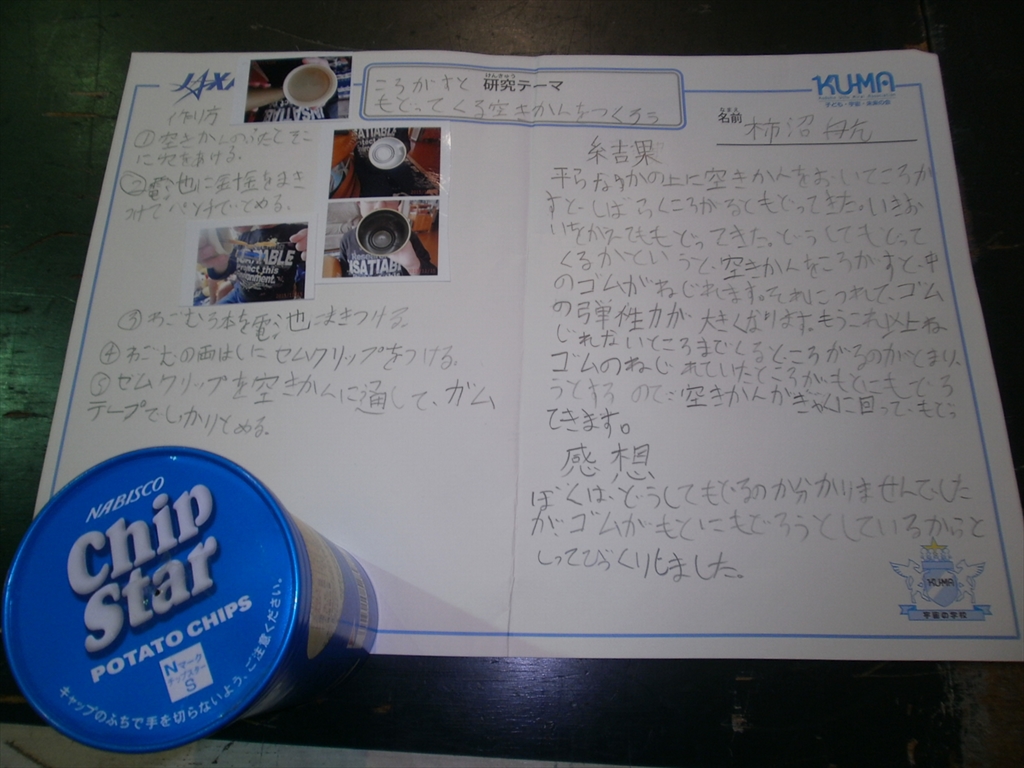 JAXA
けんきゅう
研究テーマ
ころがすと
もどってくる空きかんをつくろう
KUMA
子ども・宇宙・未来の会
なまえ
名前
柿沼
作り方
①空きかんのふたとそこ
に穴をあける。
②電池に金をまき
つけてパンチでとめる。
③わごむ3本を電池にまきつける。
④わごむの両はしにセムクリップをつける。
⑤セムクリップを空きかんに通して、ガム
テープでしっかりとめる。
結果
平らなゆかの上に空きかんをおいてころが
すと、しばらくころがるともどってきた。いきお
いをかえてももどってきた。どうしてもどって
くるかというと、空きかんをころがすと、中
のゴムがねじれます。それにつれて、ゴム
の弾性力が大きくなります。もうこれ以上ね
じれないところまでくるところがるのがとまり、
ゴムのねじれていたところがもとにもどろ
うとするので、空きかんがぎゃくに回って、もどっ
てきます。
感想
ぼくは、どうしてもどるのか分かりませんでした
が、ゴムがもとにもどろうとしているからと
しってびっくりしました。
KUMA
宇宙の学校
NABISCO
Chip
Star
POTATO CHIPS
Nマーク
チップスター
S
キャップのふちで手を切らないよう、ご注意ください。